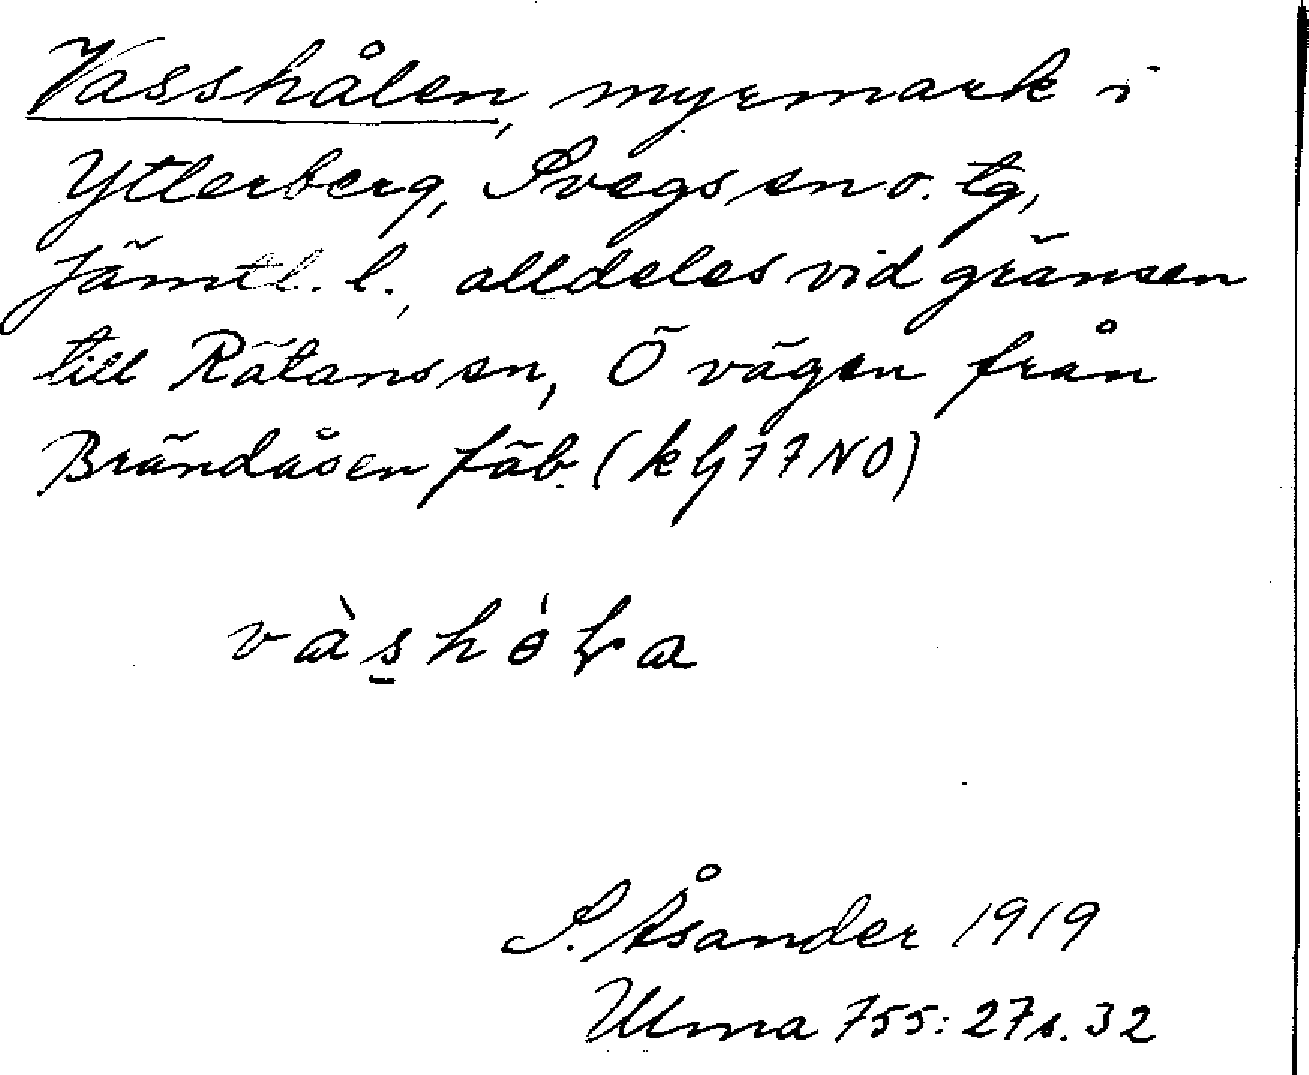 Vasshålen, myrmark i
Ytterberg, Svegs sn o. tg,
Jämtl. l., alldeles vid gränsen
till Rätans sn, Ö vägen från
Brändåsen fäb. (kbl 77 NO)
S. Åsander 1919
Ulma 755: 27 s. 32